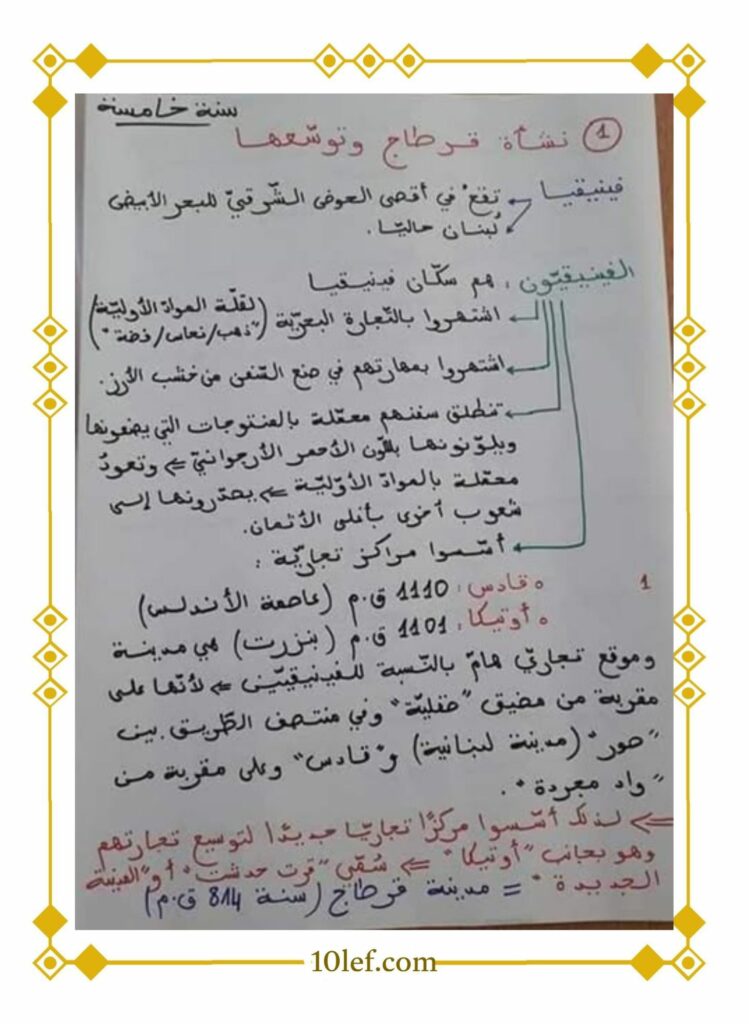 سنة خامسة
1 نشأة قرطاج وتوسّعها
فينيقيا
تقع في أقصى الحوض الشّرقيّ للبحر الأبيض
لُبنان حاليّا.
الفينيقيّون : هم سكّان فينيقيا
اشتهروا بالتّجارة البحريّة (لقلّة الموادّ الأوليّة
"ذهب/نحاس/فضة")
اشتهروا بمهارتهم في صنع السّفن من خشب الأرز.
تنطلق سفنهم محمّلة بالمنتوجات التي يصنعونها
ويلوّنونها باللّون الأحمر الأرجوانيّ ⇐ وتعودُ
محمّلة بالموادّ الأوّليّة ⇐ يصدّرونها إلى
شعوب أخرى بأغلى الأثمان.
أسّسوا مراكز تجاريّة :
1
قادس: 1110 ق.م (عاصمة الأندلس)
أوتيكا: 1101 ق.م (بنزرت) هي مدينة
وموقع تجاريّ هامّ بالنّسبة للفينيقيّين ⇐ لأنّها على
مقربة من مضيق "صقليّة" وفي منتصف الطّريق بين
"صور" (مدينة لبنانية) و"قادس" وعلى مقربة من
"واد مجردة".
⇐ لذلك أسّسوا مركزًا تجاريّا جديدًا لتوسيع تجارتهم
وهو بجانب "أوتيكا" ⇐ سُمّي "قرت حدشت" أو "المدينة
الجديدة" = مدينة قرطاج (سنة 814 ق.م)
10lef.com